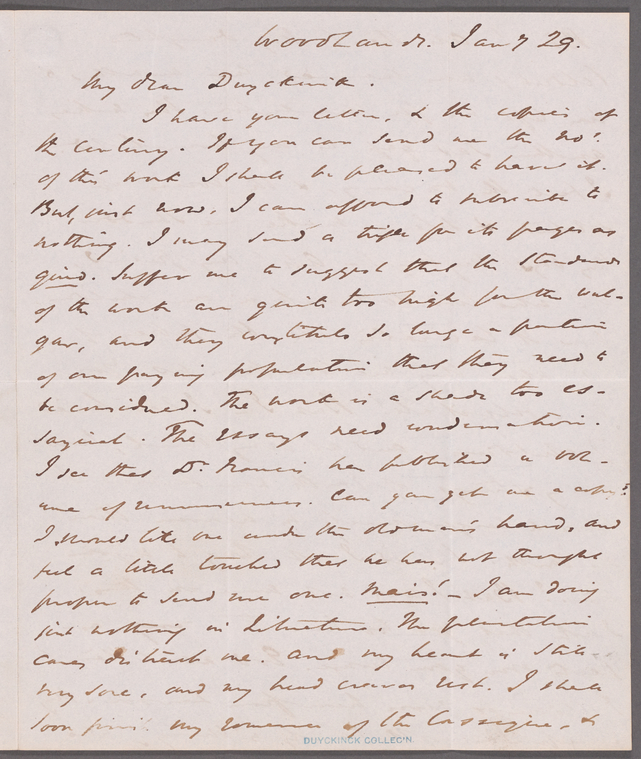 Woodlands. Jany 29.
My dear Duyckinck.
I have your letter, & the copies of
the Century. If you can send me the nos.
of this work I shall be pleased to have it.
But, just now, I can afford to subscribe to
nothing. I may send a trifle for its pages as
quid. Suffer me to suggest that the standards
of the work are quite too high for the vul-
gar, and they constitute so large a portion
of our paying population that they need to
be considered. The work is a shade too es-
sayical. The essays need condensation.
I see that Dr. Francis has published a vol-
ume of reminiscences. Can you get me a copy?
I should like one under the old man's hand, and
feel a little touched that he has not thought
proper to send me one. Mais! – I am doing
just nothing in Literature. The plantation
cares distract me. And my heart is still
very sore, and my head craves rest. I shall
soon finish my romance of the Cassique, &
DUYCKINCK COLLEC'N.